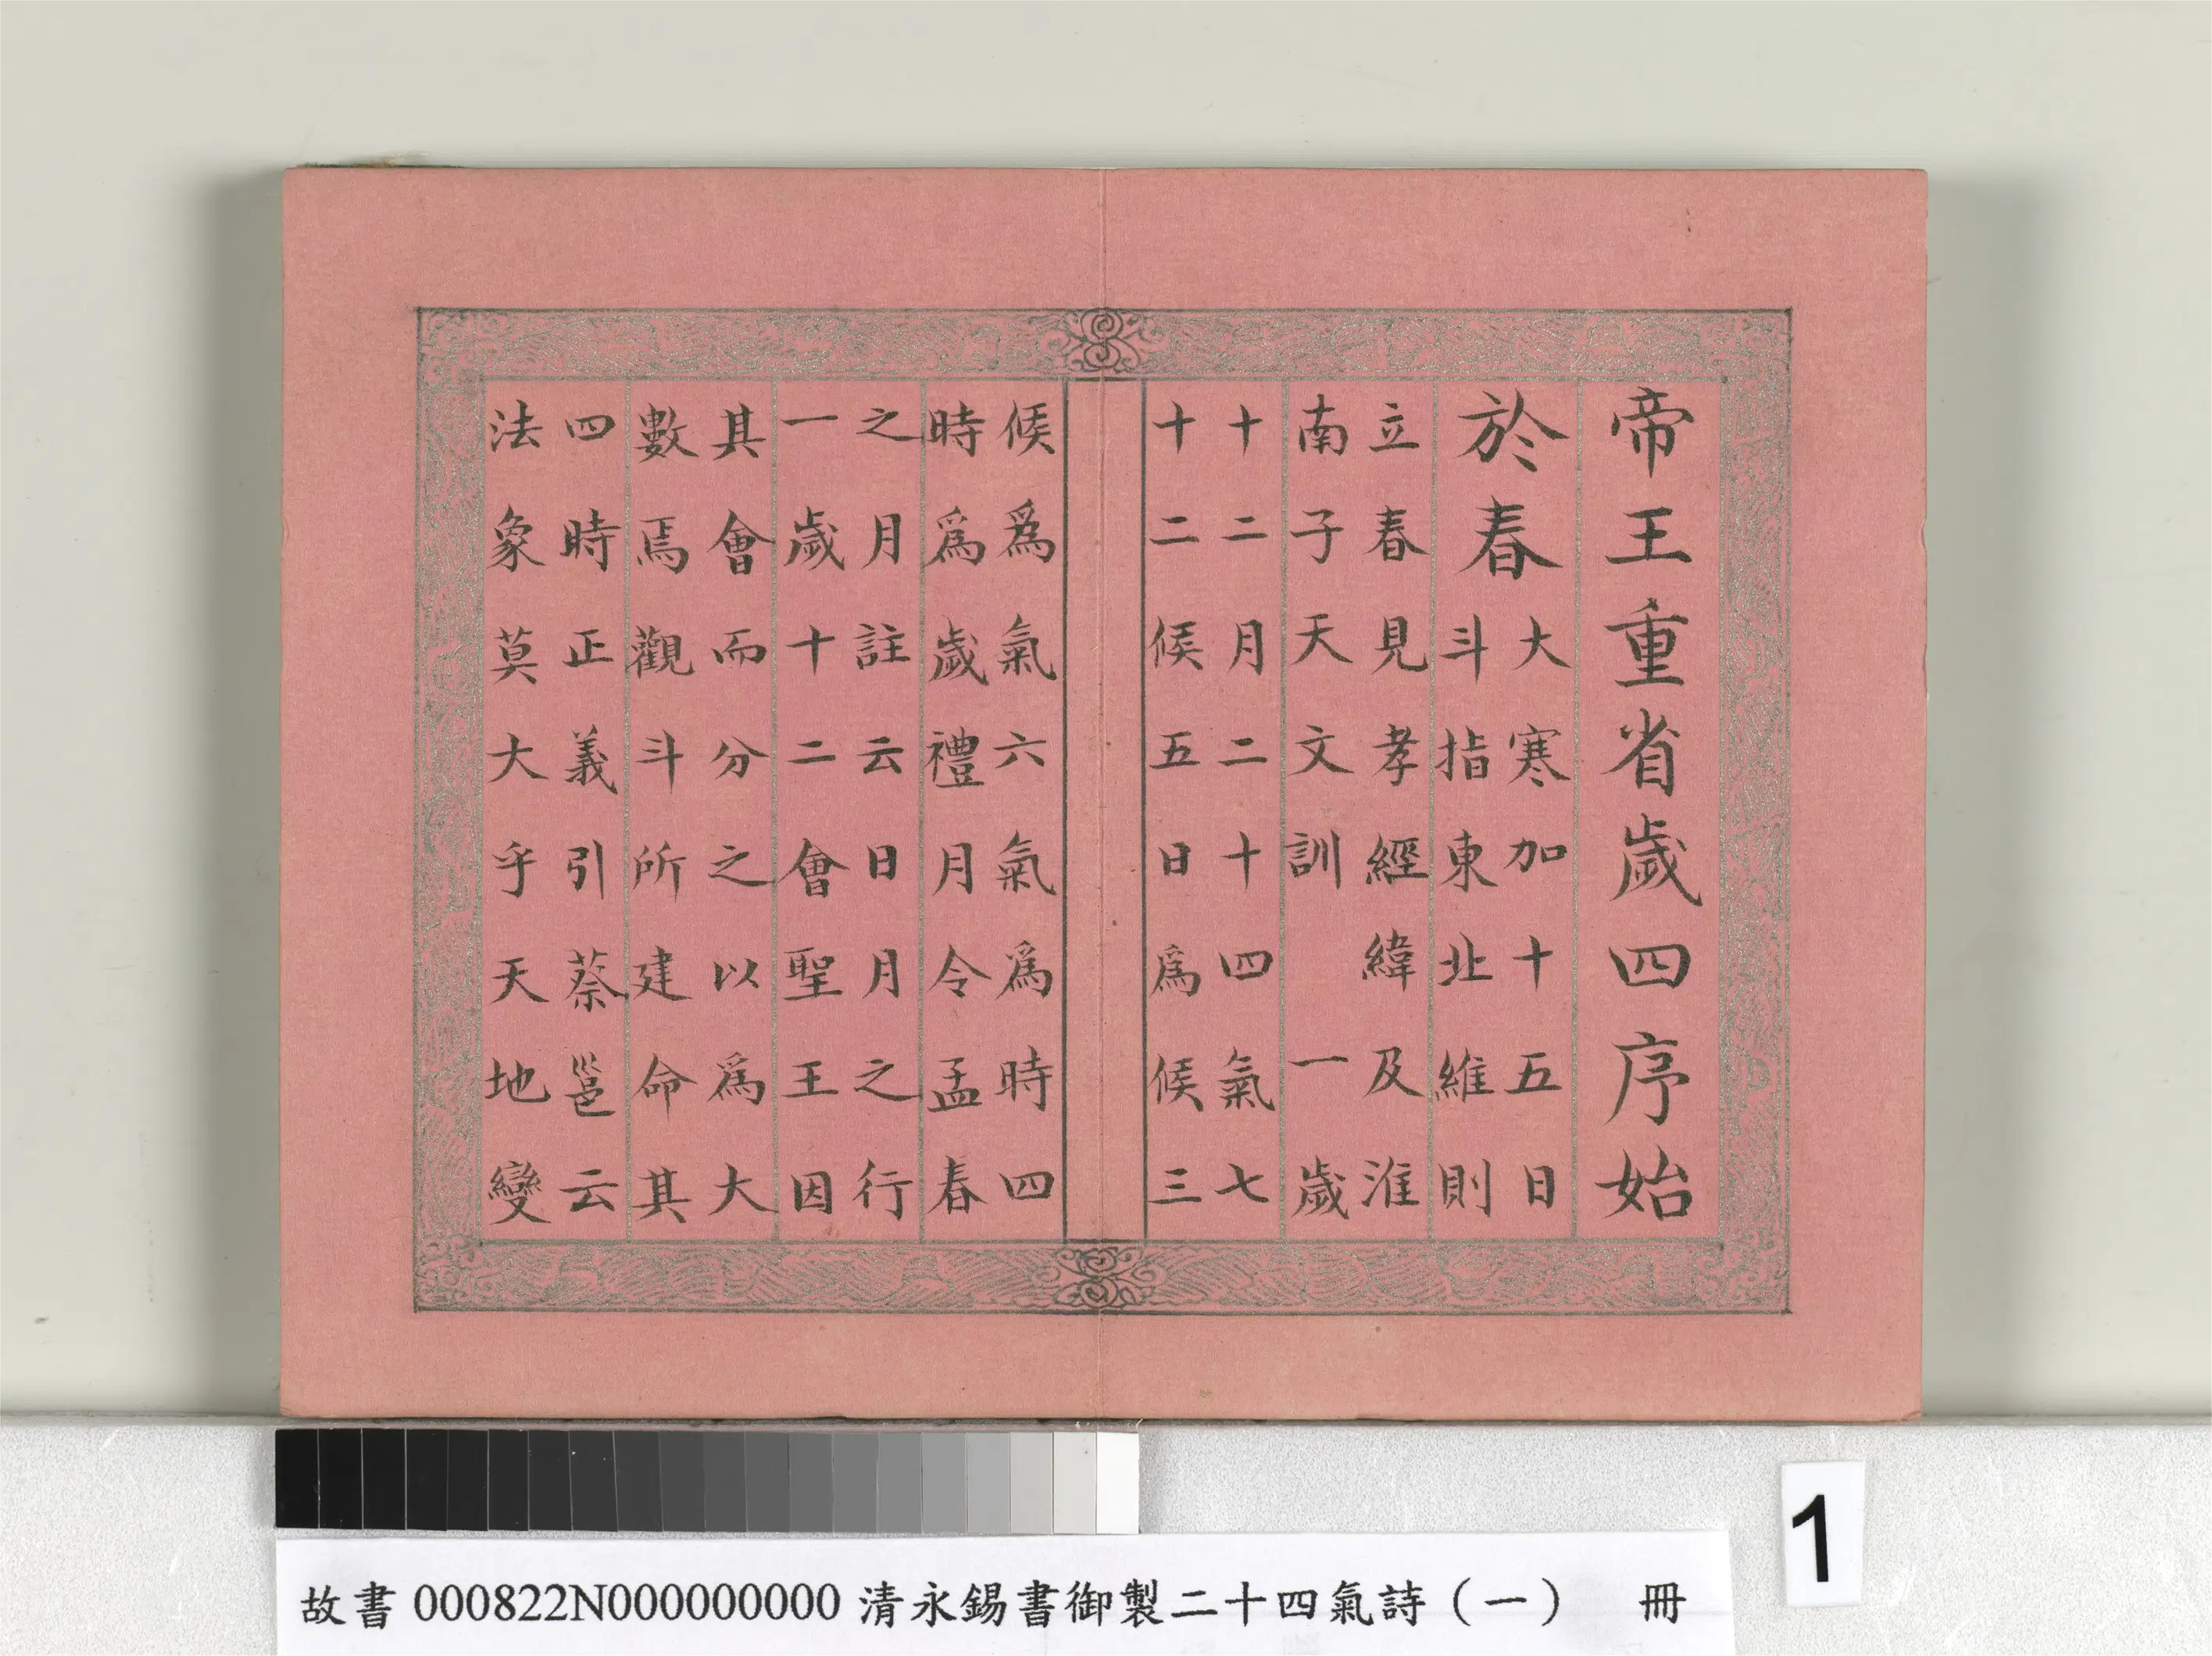 帝王重省歲四序始
於春
大寒加十五日
斗指東北維則
立春見孝經緯及淮
南子天文訓　一歲
十二月二十四氣七
十二候五日為候三
候爲氣六氣爲時四
時爲歲禮月令孟春
之月註云日月之行
一歲十二會聖王因
其會而分之以爲大
數焉觀斗所建命其
四時正義引蔡邕云
法象莫大乎天地變
故書 000822N000000000 清永錫書御製二十四氣詩（一）　冊
1